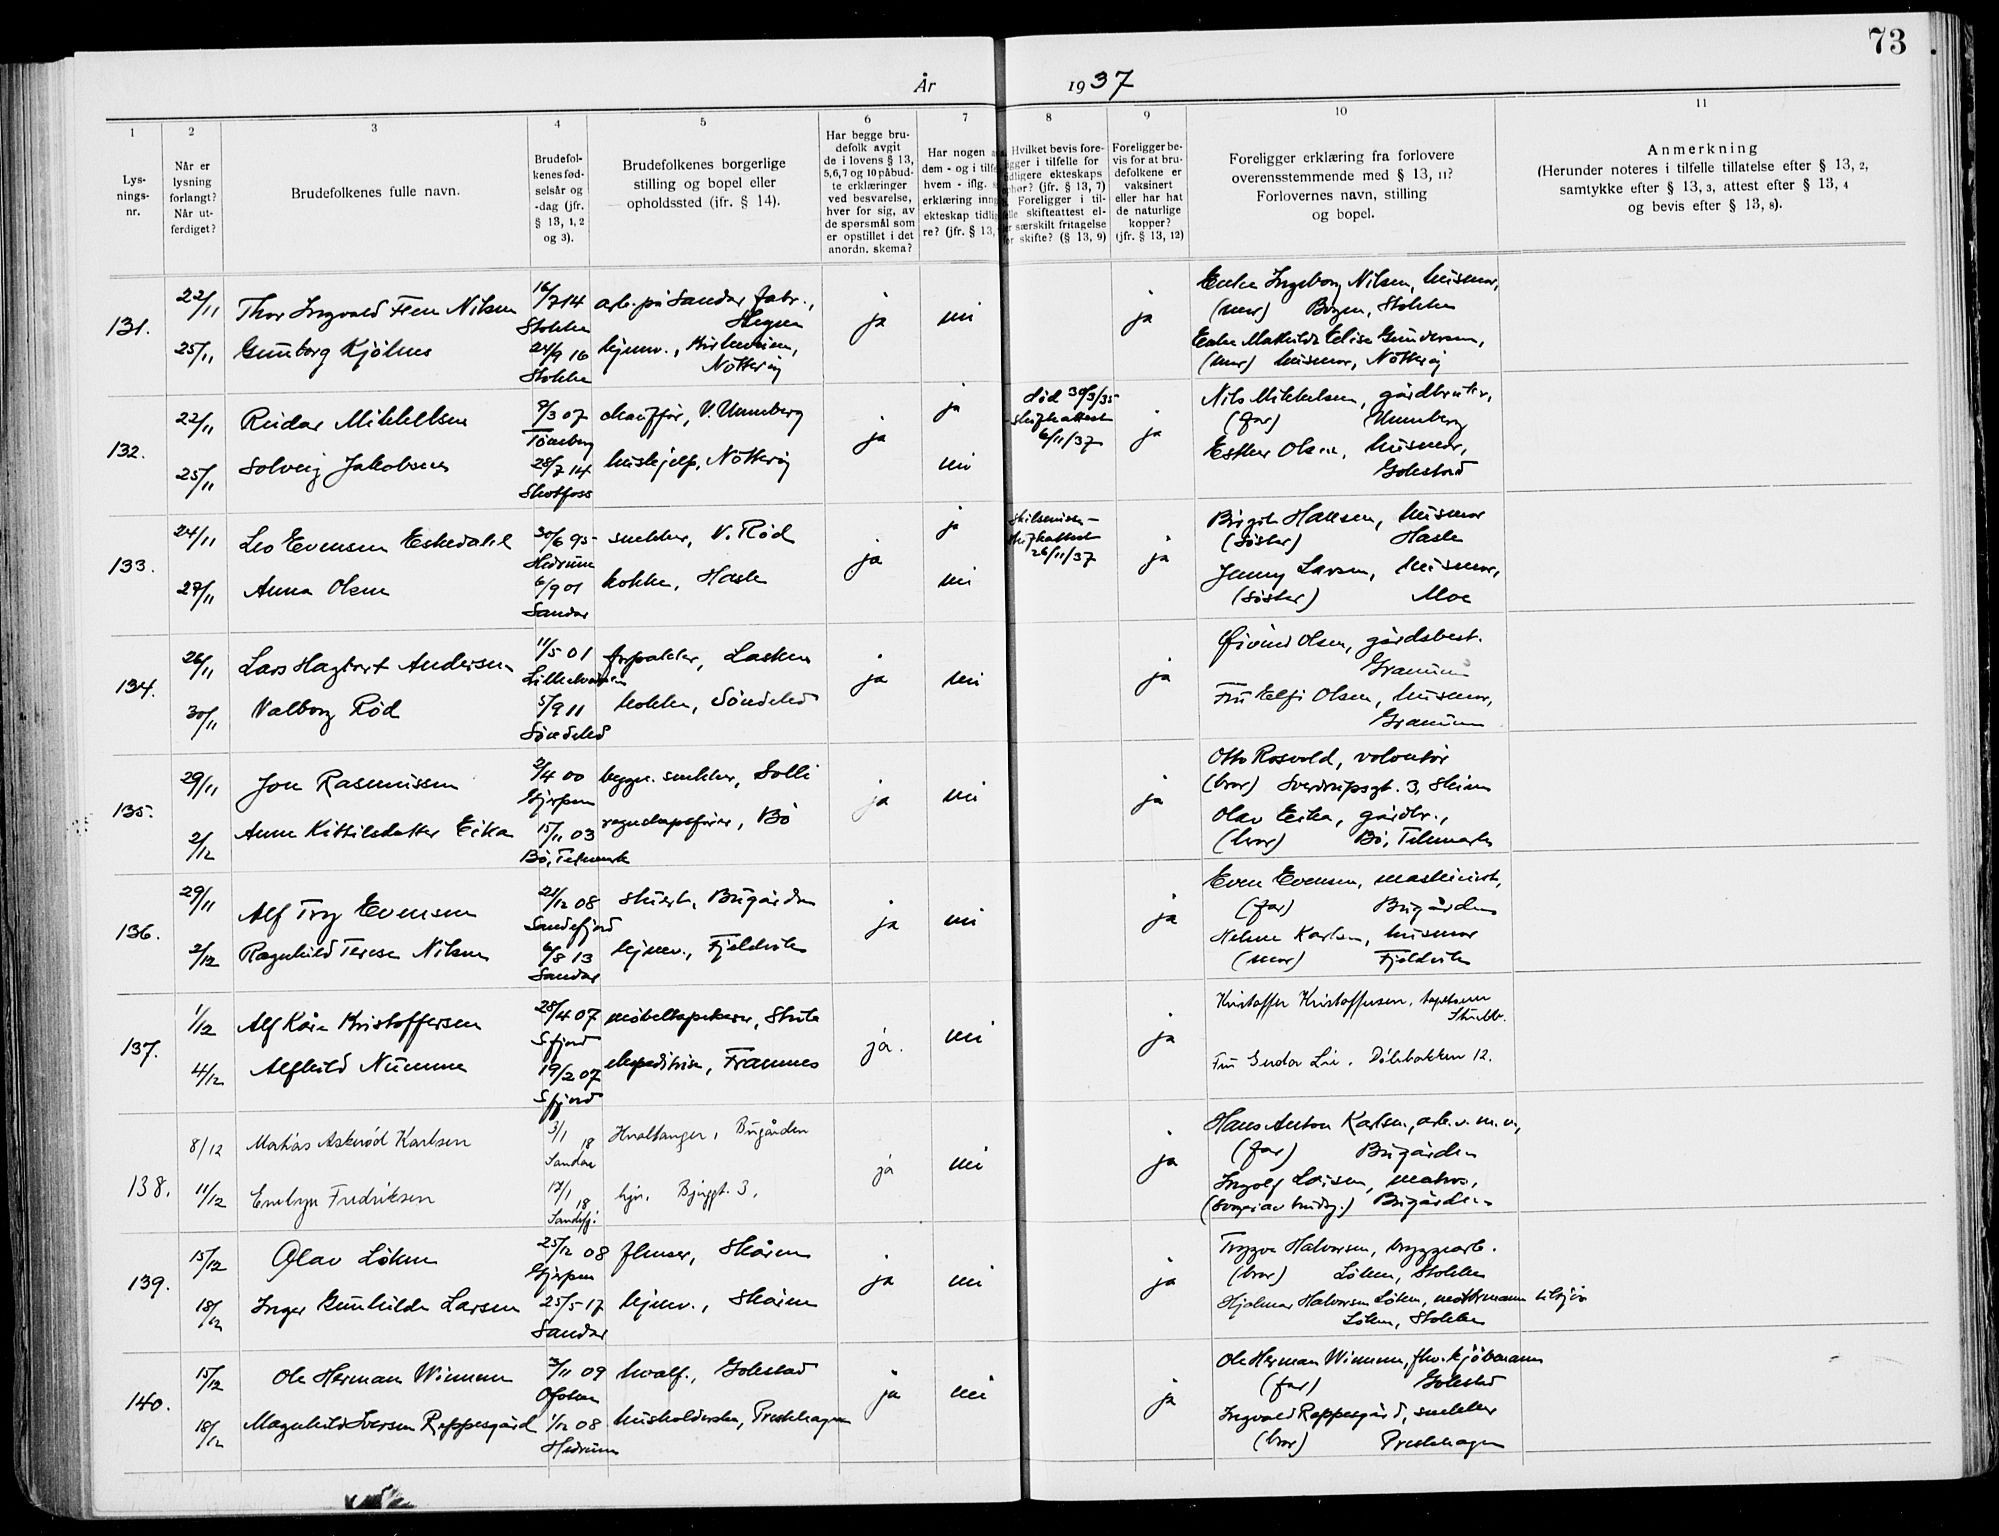 73
År 1937
1
2
3
4
5
6
7
8
9
10
11
Lys-
nings-
nr.
Når er
lysning
forlangt?
Når ut-
ferdiget?
Brudefolkenes fulle navn.
Brudefol-
kenes fød-
selsår og
-dag (jfr.
§ 13, 1, 2
og 3).
Brudefolkenes borgerlige
stilling og bopel eller
opholdssted (ifr. § 14).
Har begge bru-
defolk avgit
de i lovens § 13,
5, 6, 7 og 10 påbud-
te erklæringer
ved besvarelse,
hver for sig, av
de spørsmål som
er opstillet i det
anordn. skema?
Har nogen
dem - og i tilfe
hvem - iflg.
erklæring inng
ekteskap tidlig
re? (jfr. § 13,
Hvilket bevis fore-
ligger i tilfelle for
tidligere ekteskaps
ophør? (jfr. § 13, 7)
Foreligger i til-
felle skifteattest el-
er særskilt fritagelse
for skifte? (§ 13, 9)
Foreligger be-
vis for at bru-
defolkene er
vaksinert
eller har hat
de naturlige
kopper?
(jfr. § 13, 12)
Foreligger erklæring fra forlovere
overensstemmende med § 13, 11?
Forlovernes navn, stilling
og bopel.
Anmerkning
(Herunder noteres i tilfelle tillatelse efter § 13, 2,
samtykke efter § 13, 3, attest efter § 13, 4
og bevis efter § 13, 8).
131.
22/11 Thor Ingvald Fen Nilsen 16/7 14 arb. på Sandar fabr.,
Stokke
25/11 Gunborg Kjølnes 24/9 16 hjemv.,
Stokke Nøtterøy
ja nei ja
Enke Ingeborg Nilsen, husmor,
(mor) Bogen, Stokke
Enke Mathilde Elise Gundersen,
(mor) husmor, Nøtterøy
132.
22/11 Reidar Mikkelsen 9/3 07 chauffør, V. Unneberg
Tønsberg
25/11 Solveig Jakobsen 28/7 14 hushjelp, Nøtterøy
Skotfoss
ja ja nei
død 30/3/35
skifteattest
6/11/37
ja
Nils Mikkelsen, gårdbruker,
(far) Unneberg
Esther Olsen, husmor,
Gokstad
133.
24/11 Leo Evensen Eskedahl 30/6 95 snekker, V. Rød
Hedrum
27/11 Anna Olsen 6/9 01 kokke, Hasle
Sandar
ja ja nei
skilsmisse-
skifteattest
26/11/37
ja
Birgit Hansen, husmor
(søster) Hasle
Jenny Larsen, husmor,
(søster) Moe
134.
26/11 Lars Hagbart Andersen 11/5 01 forpakter, Lasken
30/11 Valborg Rød 5/9 11 kokke, Søndeled
Søndeled
ja nei ja
Øivind Olsen, gårdsbest.
Granum
Fru Elfi Olsen, husmor,
Granum
135.
29/11 Jon Rasmussen 2/4 00 bygn. snekker, Solli
Gjerpen
2/12 Anne Kittilsdatter Eika 15/11 03 regnskapsfører, Bø
Bø, Telemark
ja nei ja
Otto Rosvold, volontør
(bror) Sverdrupsgt. 3, Skien
Olav Eika, gårdbr.,
(bror) Bø, Telemark
136.
29/11 Alf Try Evensen 21/12 08 stuert, Bugården
Sandefjord
2/12 Ragnhild Terese Nilsen 6/8 13 hjemv., Fjeldvik
Sandar
ja nei ja
Even Evensen, maskinist,
(far) Bugården
Helene Karlsen, husmor
(mor) Fjeldvik
137.
1/12 Alf Kåre Kristoffersen 28/4 07 møbeltapetserer, Stub
Sfjord
4/12 Alfhild Numme 19/2 07 ekspeditrise, Framnes
Sfjord
ja. nei ja
Kristoffer Kristoffersen, tapetserer
Stubb.
Fru Gudda Lie, Dølebakken 12.
138.
8/12 Mathias Askerød Karlsen 3/1 18 Hvalfanger, Bugården
Sandar
11/12 Evelyn Fredriksen 17/1 18 hjv. Bjerggt. 3,
Sandefj.
ja nei ja
Hans Anton Karlsen, arb. v. m. v.,
(far) Bugården
Ingolf Larsen, matros,
(svoger av brudg.) Bugården
139.
15/12 Olav Løken 25/12 08 flenser, Skåren
Gjerpen
18/12 Inger Gunhilde Larsen 25/5-17 hjemv., Skåren
Sandar
ja nei ja
Trygve Halvorsen, bryggearb.
(bror) Løken, Stokke
Hjalmar Halvorsen Løken, mottrmann tilsjøs
Løken, Stokke
140.
15/12 Ole Herman Wimmen 3/11 09 hvalf., Gokstad
18/12 Magnhild Iversen Reppesgård 1/12 08 husholderske, Prestehagen
Hedrum
ja nei ja
Ole Herman Wimmen, fhv. kjøbmann
(far) Gokstad
Ingvald Reppesgård, snekker
(bror) Prestehagen